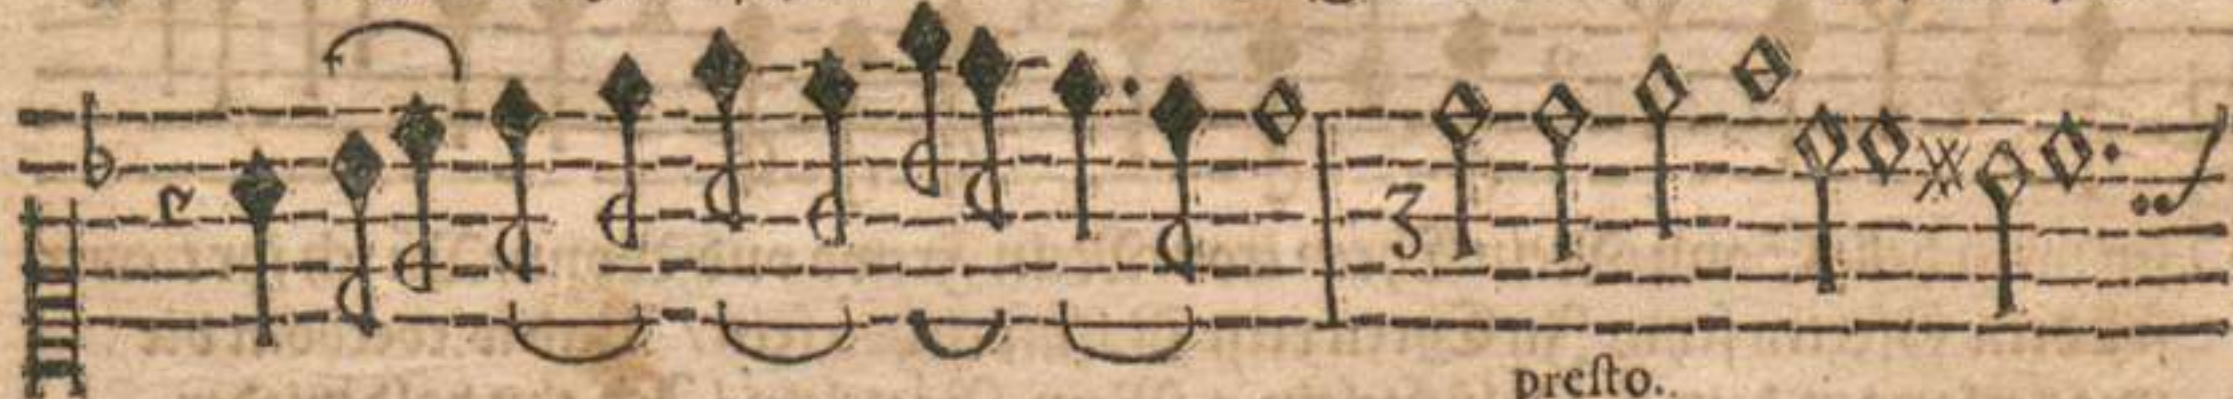 3
preſto.